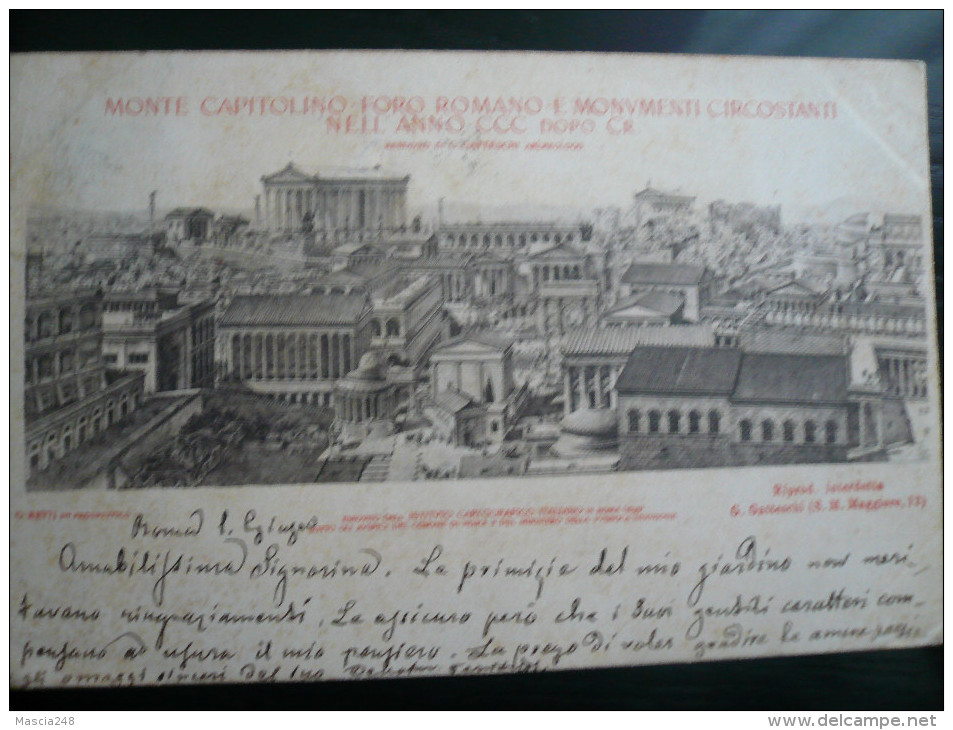 MONTE CAPITOLINO FORO ROMANO E MONVMENTI CIRCOSTANTI
NELL'ANNO CCC DOPO CR.
Riprod. interdetta
G. Gatteschi (S. M. Maggiore, 12)
Roma 1. Giugno
Amabilissima Signorina. La primizia del mio giardino non meri-
tavano ringraziamenti. La assicuro però che i Suoi gentili caratteri com-
pensano ad usura il mio pensiero. La prego di voler gradire le amene
gli omaggi sinceri dal suo
Mascia248
www.delcampe.net